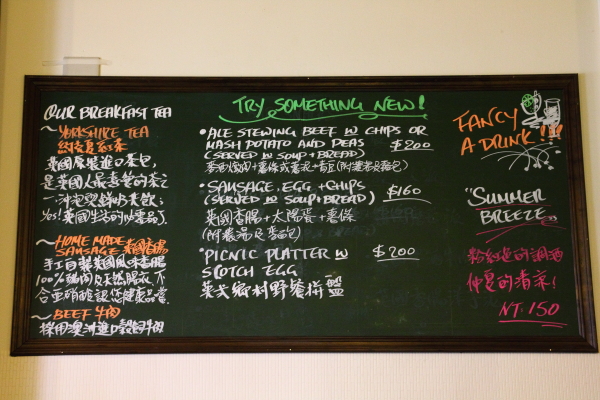 OUR BREAKFAST TEA
~ YORKSHIRE TEA
約克夏紅茶
英國原裝進口茶包,
是英國人最喜愛的茶之
一,沖泡聖鮮奶更飲;
Yes! 英國生活的必需品了.
~ HOME MADE
SAUSAGE 英國香腸
手工自製英國風味香腸
100%豬肉及天然腸衣,不
含亞硝酸鹽您健康品嘗.
~ BEEF 牛肉
採用澳洲進口穀飼牛肉
TRY SOMETHING NEW!
• ALE STEWING BEEF W CHIPS OR
MASH POTATO AND PEAS $200
(SERVED W SOUP + BREAD)
(附濃湯及麵包)
• SAUSAGE, EGG + CHIPS $160
(SERVED W SOUP + BREAD)
英國香腸 + 太陽蛋 + 薯條
(附濃湯及麵包)
• PICNIC PLATTER W $200
SCOTCH EGG
英式鄉村野餐拼盤
FANCY
A DRINK!!!
"SUMMER
BREEZE"
粉紅色的調酒
仲夏的清涼!
NT. 150